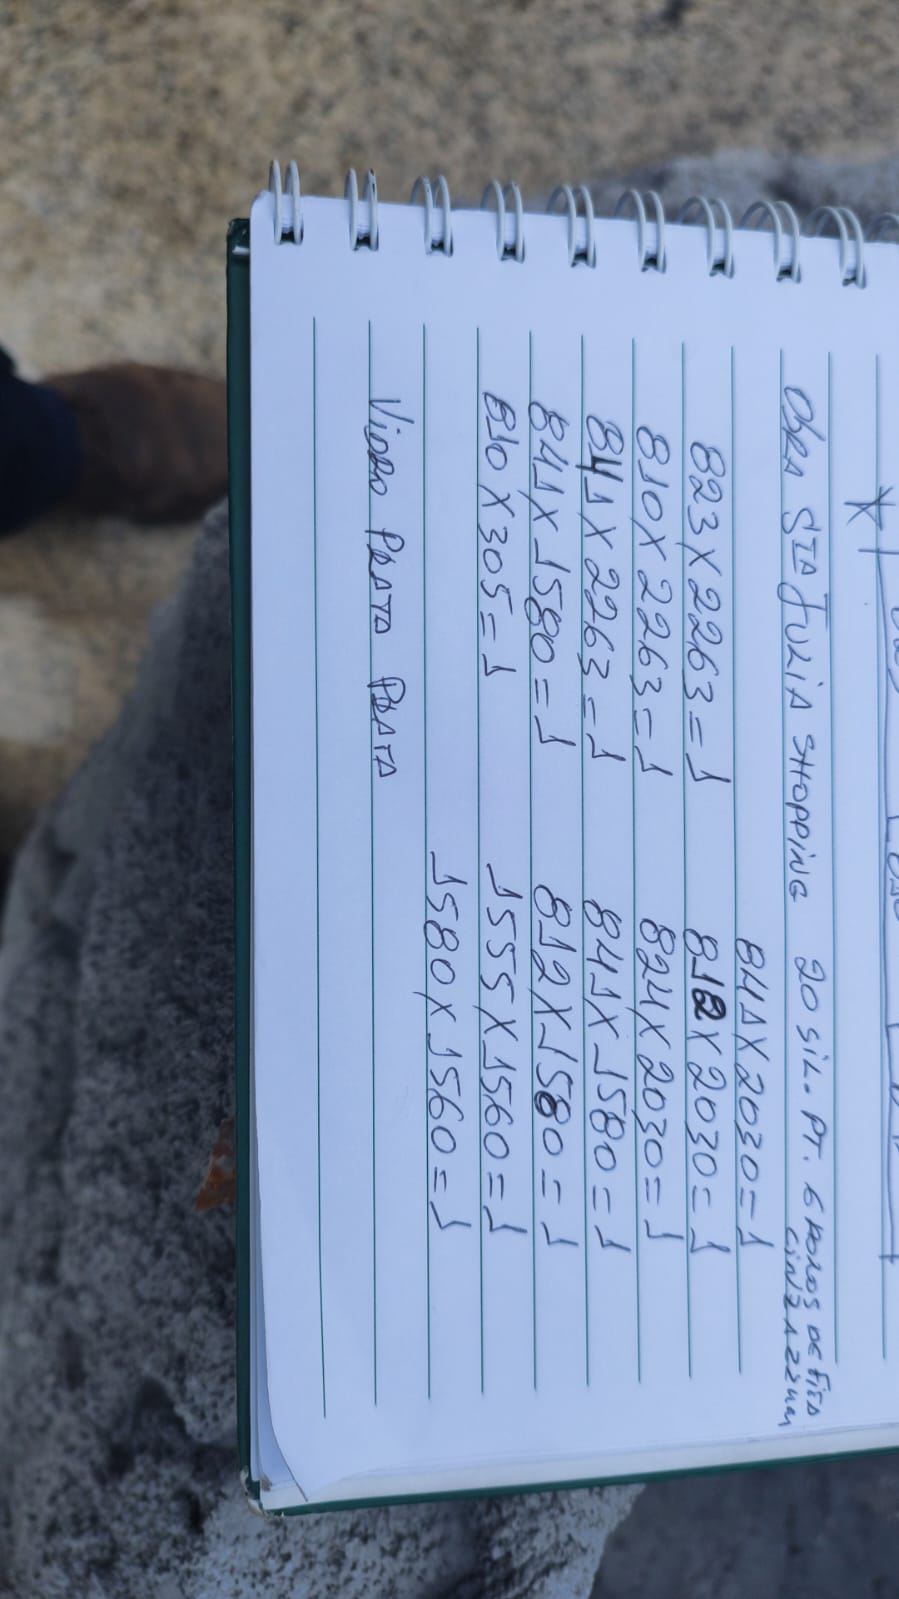 Obra Sta Julia Shopping 20 sil. PT. 6 rolos de fita
cinza 22mm
841 x 2030 = 1
823 x 2263 = 1 812 x 2030 = 1
810 x 2263 = 1 824 x 2030 = 1
841 x 2263 = 1 841 x 1580 = 1
841 x 1580 = 1 812 x 1580 = 1
810 x 305 = 1 1555 x 1560 = 1
1580 x 1560 = 1
Vidro Prata Prata